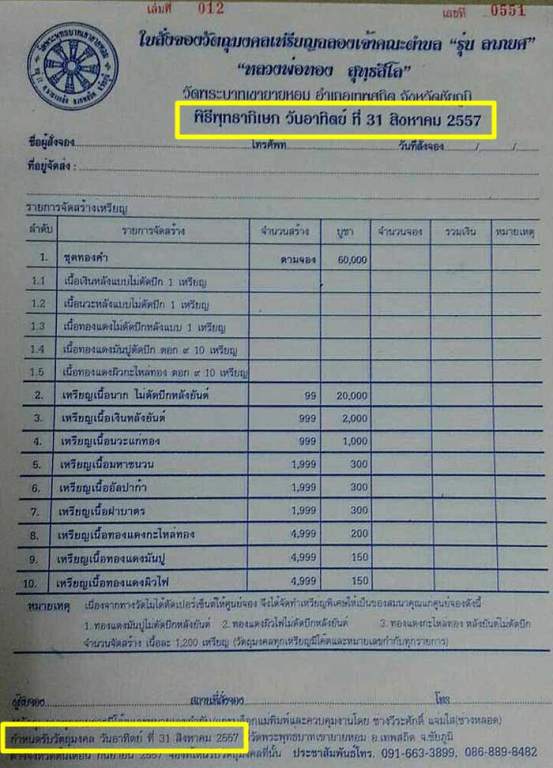 เล่มที่ 012 เลขที่ 0551
ใบสั่งจองวัตถุมงคลเหรียญฉลองเจ้าคณะตำบล "รุ่น ลาภยศ"
"หลวงพ่อทอง สุทธสีโล"
วัดพระบาทเขายายหอม อำเภอเทพสถิต จังหวัดชัยภูมิ
พิธีพุทธาภิเษก วันอาทิตย์ ที่ 31 สิงหาคม 2557
ชื่อผู้สั่งจอง โทรศัพท์ วันที่สั่งจอง / /
ที่อยู่จัดส่ง :
รายการจัดสร้างเหรียญ
ลำดับ รายการจัดสร้าง จำนวนสร้าง บูชา จำนวนจอง รวมเงิน หมายเหตุ
1. ชุดทองคำ ตามจอง 60,000
1.1 เนื้อเงินหลังแบบไม่ตัดปีก 1 เหรียญ
1.2 เนื้อนวะหลังแบบไม่ตัดปีก 1 เหรียญ
1.3 เนื้อทองแดงไม่ตัดปีกหลังแบบ 1 เหรียญ
1.4 เนื้อทองแดงมันปูตัดปีก ตอก ๙ 10 เหรียญ
1.5 เนื้อทองแดงผิวกะไหล่ทอง ตอก ๙ 10 เหรียญ
2. เหรียญเนื้อนาก ไม่ตัดปีกหลังยันต์ 99 20,000
3. เหรียญเนื้อเงินหลังยันต์ 999 2,000
4. เหรียญเนื้อนวะแก่ทอง 999 1,000
5. เหรียญเนื้อมหาชนวน 1,999 300
6. เหรียญเนื้ออัลปาก้า 1,999 300
7. เหรียญเนื้อฝาบาตร 1,999 300
8. เหรียญเนื้อทองแดงกะไหล่ทอง 4,999 200
9. เหรียญเนื้อทองแดงมันปู 4,999 150
10. เหรียญเนื้อทองแดงผิวไฟ 4,999 150
หมายเหตุ เนื่องจากทางวัดไม่ได้ตัดเปอร์เซ็นท์ให้ศูนย์จอง จึงได้จัดทำเหรียญพิเศษให้เป็นของสมนาคุณแก่ศูนย์จองดังนี้
1. ทองแดงมันปูไม่ตัดปีกหลังยันต์ 2. ทองแดงผิวไฟไม่ตัดปีกหลังยันต์ 3. ทองแดงกะไหล่ทอง หลังยันต์ไม่ตัดปีก
จำนวนจัดสร้าง เนื้อละ 1,200 เหรียญ (วัตถุมงคลทุกเหรียญมีโค้ดและหมายเลขกำกับทุกรายการ)
ผู้รับจอง สถานที่สั่งจอง โทร
แม่พิมพ์และควบคุมงานโดย ช่างวีระศักดิ์ แจ่มใส(ช่างหลอด)
กำหนดรับวัตถุมงคล วันอาทิตย์ ที่ 31 สิงหาคม 2557 วัดพระพุทธบาทเขายายหอม อ.เทพสถิต จ.ชัยภูมิ
กันยายน 2557 ประชาสัมพันธ์โทร. 091-663-3899, 086-889-8482